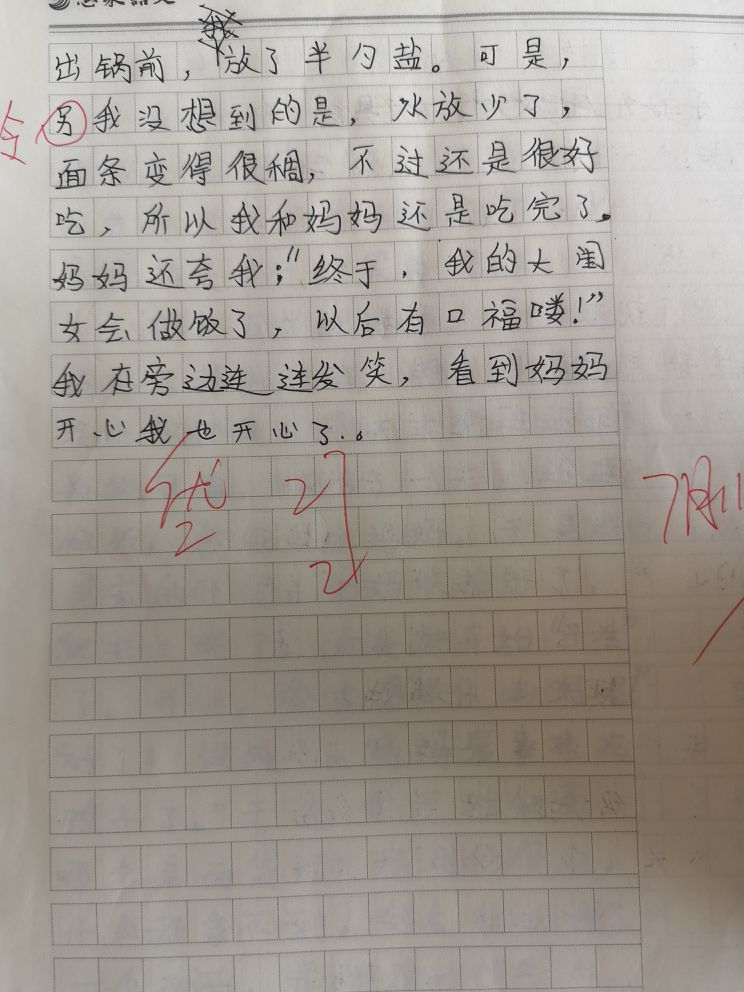 出锅前，放了半勺盐。可是，
另我没想到的是，水放少了，
面条变得很稠，不过还是很好
吃，所以我和妈妈还是吃完了。
妈妈还夸我：“终于，我的大闺
女会做饭了，以后有口福喽！”
我在旁边连连发笑，看到妈妈
开心我也开心了。
优